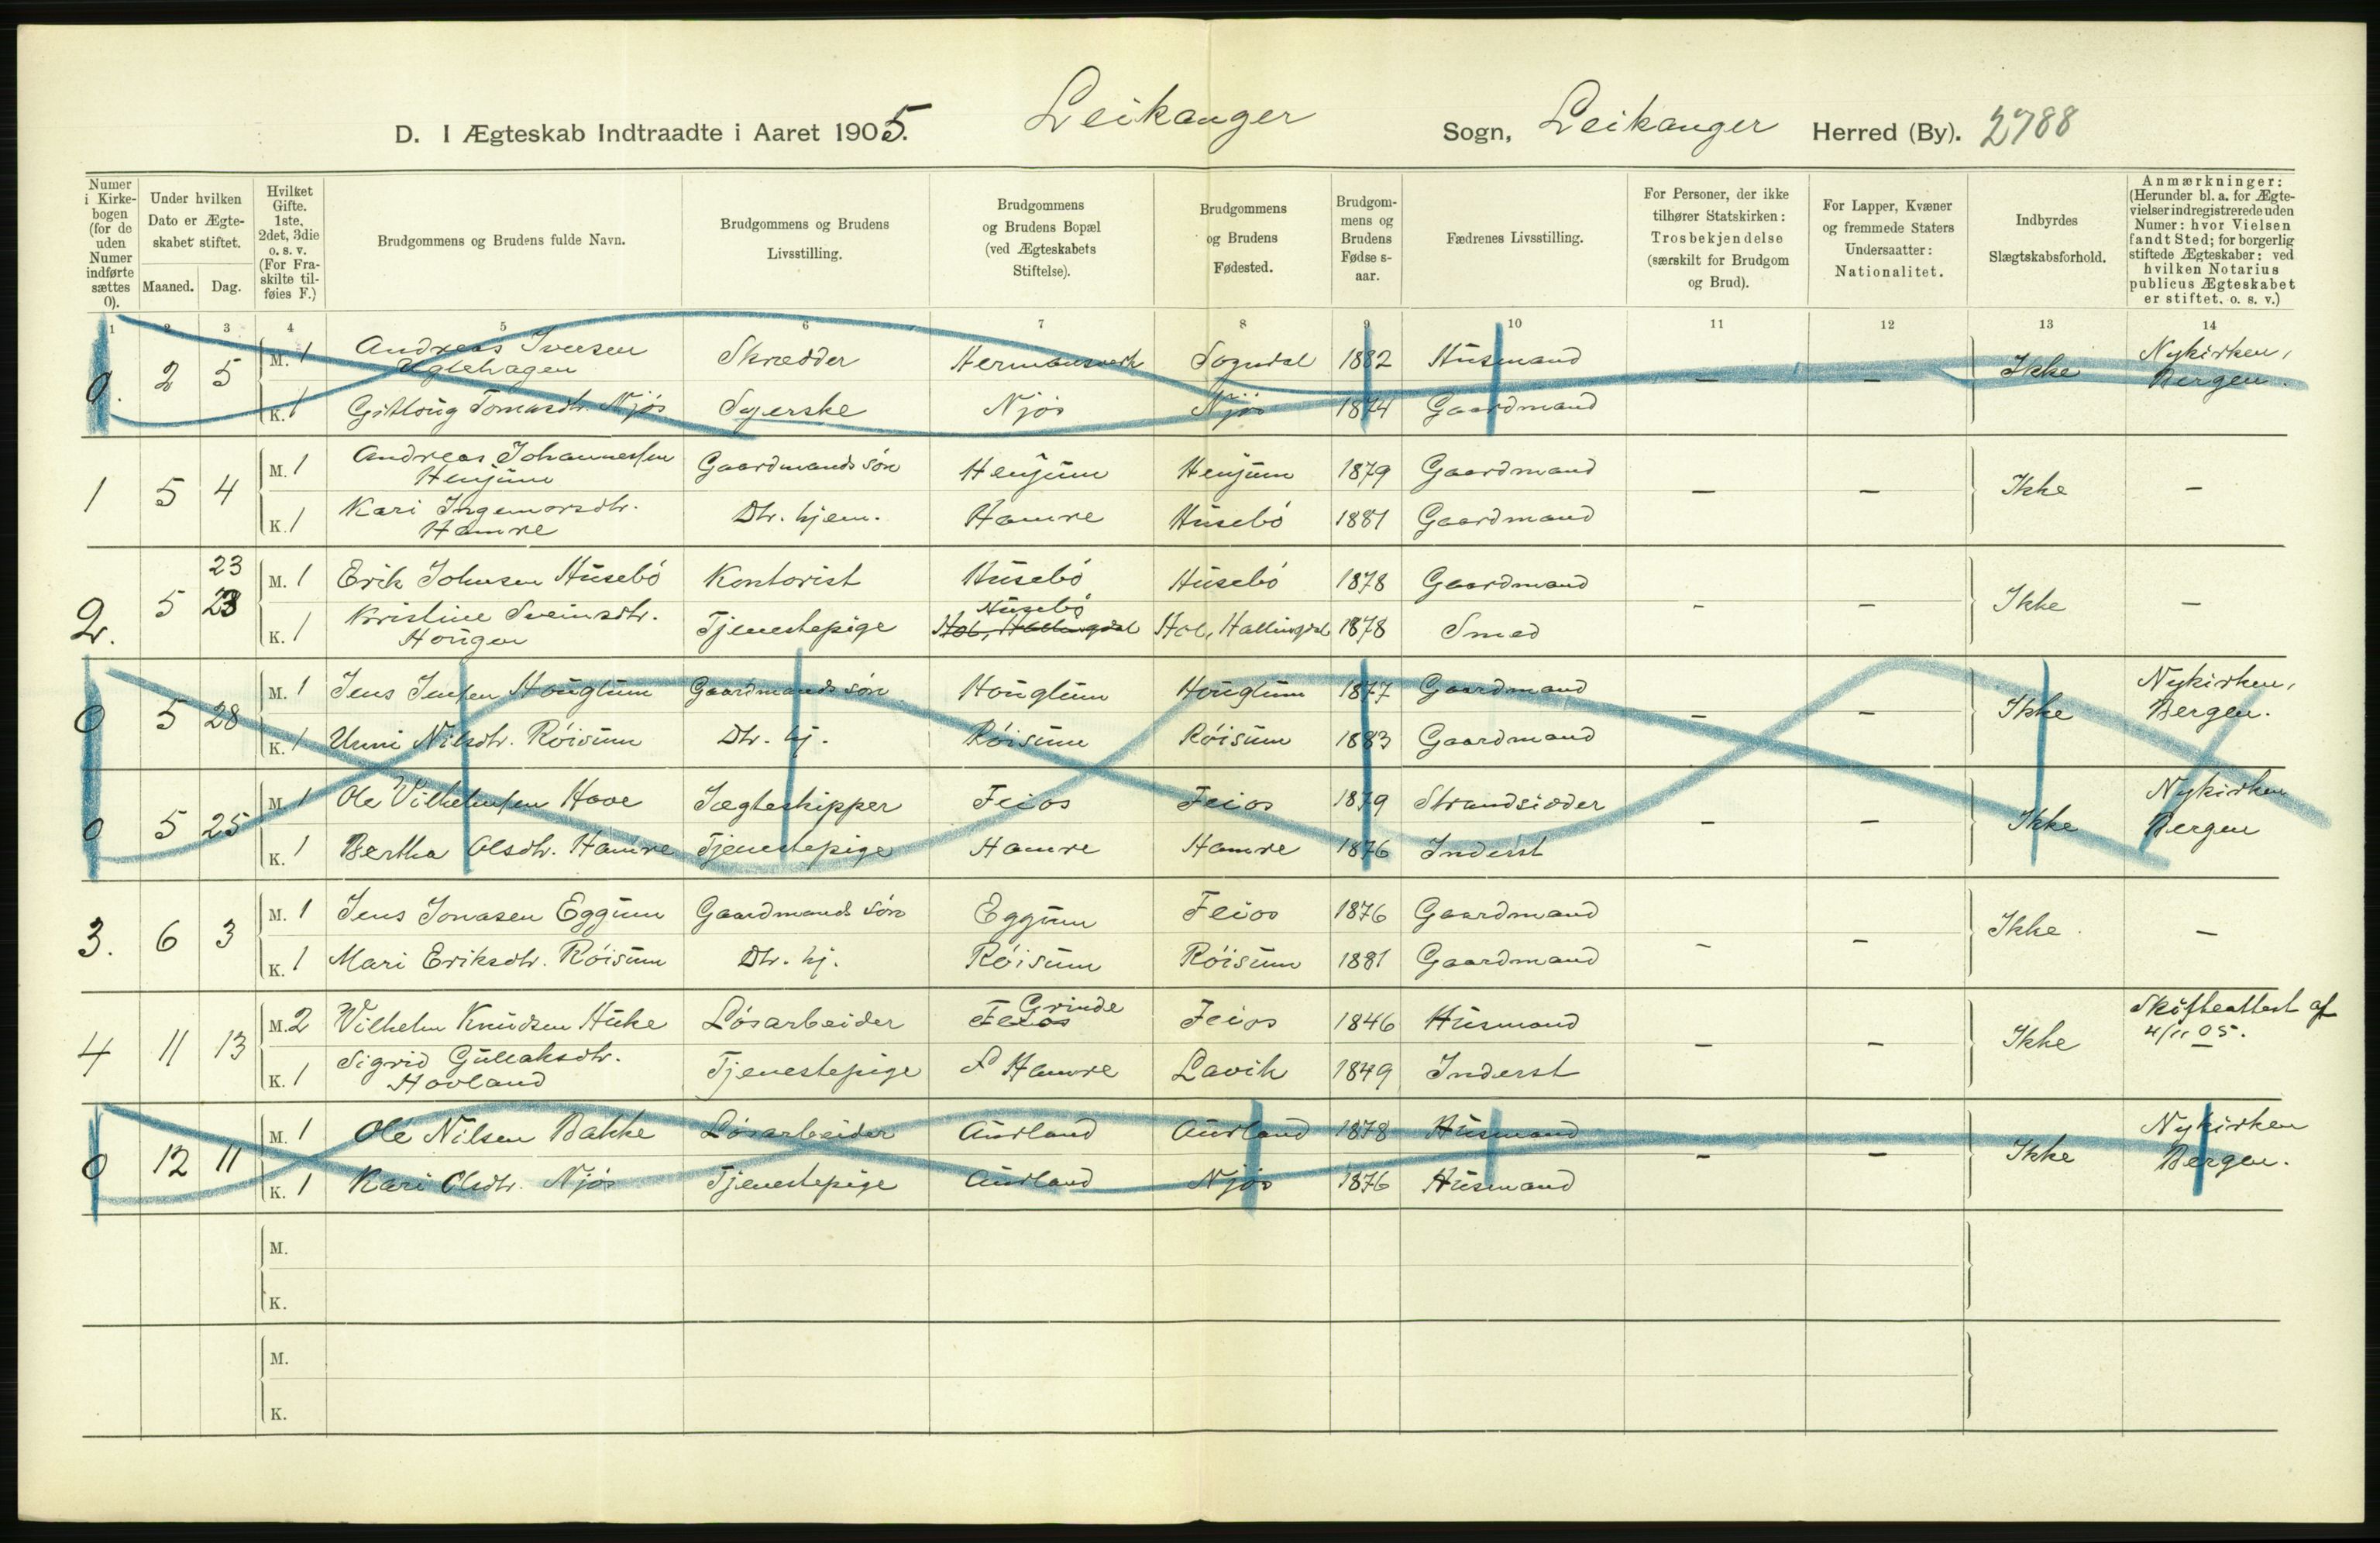 D. I Ægteskab Indtraadte i Aaret 1905. Leikanger Sogn, Leikanger Herred (By). 2788
Numer i Kirke-bogen (for de uden Numer indførte sættes 0).
Under hvilken Dato er Ægte-skabet stiftet.
Maaned. Dag.
Hvilket Gifte. 1ste, 2det, 3die o. s. v. (For Fra-skilte til-føies F.)
Brudgommens og Brudens fulde Navn.
Brudgommens og Brudens Livsstilling.
Brudgommens og Brudens Bopæl (ved Ægteskabets Stiftelse).
Brudgommens og Brudens Fødested.
Brudgom-mens og Brudens Fødse s-aar.
Fædrenes Livsstilling.
For Personer, der ikke tilhører Statskirken: Trosbekjendelse (særskilt for Brudgom og Brud).
For Lapper, Kvæner og fremmede Staters Undersaatter: Nationalitet.
Indbyrdes Slægtskabsforhold.
Anmærkninger: (Herunder bl. a. for Ægte-vielser indregistrerede uden Numer: hvor Vielsen fandt Sted; for borgerlig stiftede Ægteskaber: ved hvilken Notarius publicus Ægteskabet er stiftet. o. s. v.)
1 2 3 4 5 6 7 8 9 10 11 12 13 14
0. 2 5 M. 1 Andreas Iversen Uglehagen Skrædder Hermansverk Sogndal 1882 Husmand – – Ikke Nykirken, Bergen.
K. 1 Gitloug Tomasdtr. Njøs Syerske Njøs Njøs 1874 Gaardmand
1 5 4 M. 1 Andreas Johannessen Henjum Gaardmands søn Henjum Henjum 1879 Gaardmand – – Ikke –
K. 1 Kari Ingemorsdtr. Hamre Dtr. hjem. Hamre Husebø 1881 Gaardmand
2. 5 23 23 M. 1 Erik Johnsen Husebø Kontorist Husebø Husebø 1878 Gaardmand – – Ikke –
K. 1 Kristine Sveinsdtr. Hougen Tjenestepige Husebø Hol, Hallingdal Hol, Hallingdal 1878 Smed
0 5 28 M. 1 Jens Jensen Houglum Gaardmands søn Houglum Houglum 1877 Gaardmand – – Ikke Nykirken, Bergen.
K. 1 Unni Nilsdtr. Røisum Dtr. hj. Røisum Røisum 1883 Gaardmand
0 5 25 M. 1 Ole Vilhelmsen Hove Jægteskipper Feios Feios 1879 Strandsidder – – Ikke Nykirken Bergen
K. 1 Bertha Olsdtr. Hamre Tjenestepige Hamre Hamre 1876 Inderst
3. 6 3 M. 1 Jens Jonasen Eggum Gaardmands søn Eggum Feios 1876 Gaardmand – – Ikke. –
K. 1 Mari Eriksdtr. Røisum Dtr. hj. Røisum Røisum 1881 Gaardmand
4 11 13 M. 2 Vilhelm Knudsen Huke Løsarbeider Grinde Feios Feios 1846 Husmand – – Ikke Skifteattest af 4/11 05.
K. 1 Sigrid Gullaksdtr. Hovland Tjenestepige Hamre Lavik 1849 Inderst
0 12 11 M. 1 Ole Nilsen Bakke Løsarbeider Aurland Aurland 1878 Husmand – – Ikke Nykirken Bergen.
K. 1 Kari Olsdtr. Njøs Tjenestepige Aurland Njøs 1876 Husmand
M.
K.
M.
K.